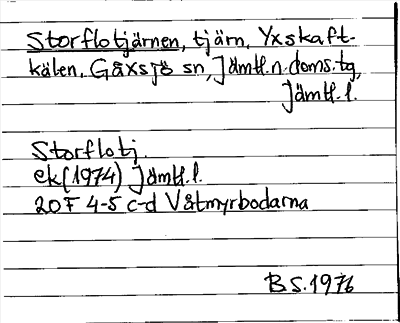 Storflotjärnen, tjärn, Yxskaft-
kälen, Gåxsjö sn, Jämtl.n.doms.tg,
Jämtl.l.
Storflotj.
ek(1974) Jämtl.l.
20F 4-5 c-d Våtmyrbodarna
BS.1976